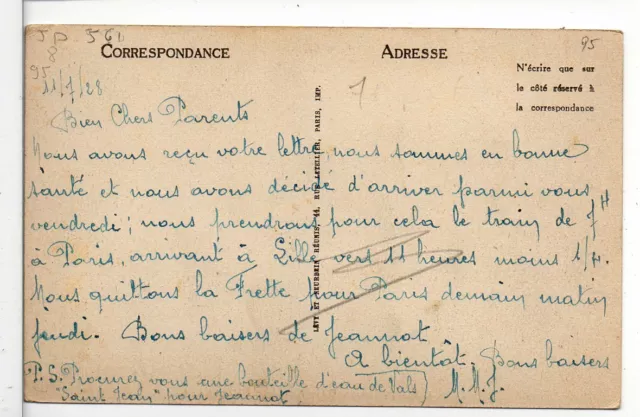 JP 561
8
95
95
CORRESPONDANCE
ADRESSE
N'écrire que sur
le côté réservé à
la correspondance
LÉVY ET NEURDEIN RÉUNIS, 44, RUE LETELLIER, PARIS, IMP.
11/7/28
Bien Chers Parents
Nous avons reçu votre lettre, nous sommes en bonne
santé et nous avons décidé d'arriver parmi vous
vendredi ; nous prendrons pour cela le train de 7H
à Paris, arrivant à Lille vers 11 heures moins 1/4.
Nous quittons la Frette pour Paris demain matin
jeudi. Bons baisers de Jeannot
A bientôt. Bons baisers
P.S. Procurez vous une bouteille d'eau de Vals
"Saint Jean" pour Jeannot
M.M.J.